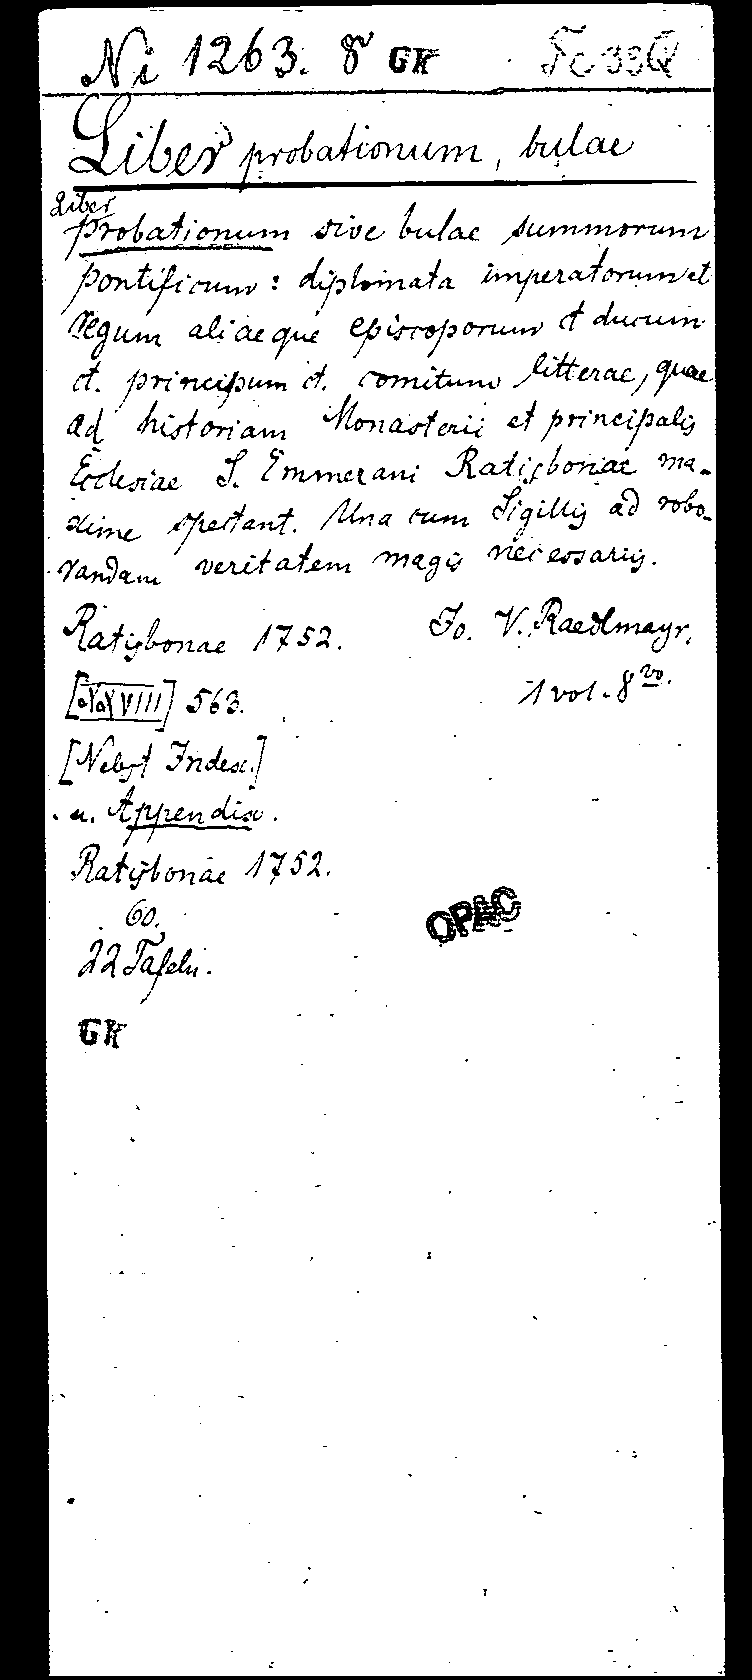 Ni 1263. 8 GK Fc 33Q
Liber probationum, bulae
Liber
probationum sive bulae summorum
pontificum: diplomata imperatorum et
regum aliaeque episcoporum et ducum
et. principum et. comitum litterae, quae
ad historiam Monasterii et principalis
Ecclesiae S. Emmerani Ratisbonae ma-
xime spectant. Una cum Sigillis ad robo-
randam veritatem magis necessariis.
Ratisbonae 1752. Jo. V. Raedlmayr.
[XXVIII] 563. 1 vol. 8vo.
[Nebst Index.]
u. Appendix.
Ratisbonae 1752.
60.
22 Tafeln.
OPAC
GK